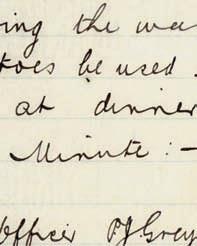 ring the wa
toes be used.
at dinner
Minute:-
Officer P. J. Grey